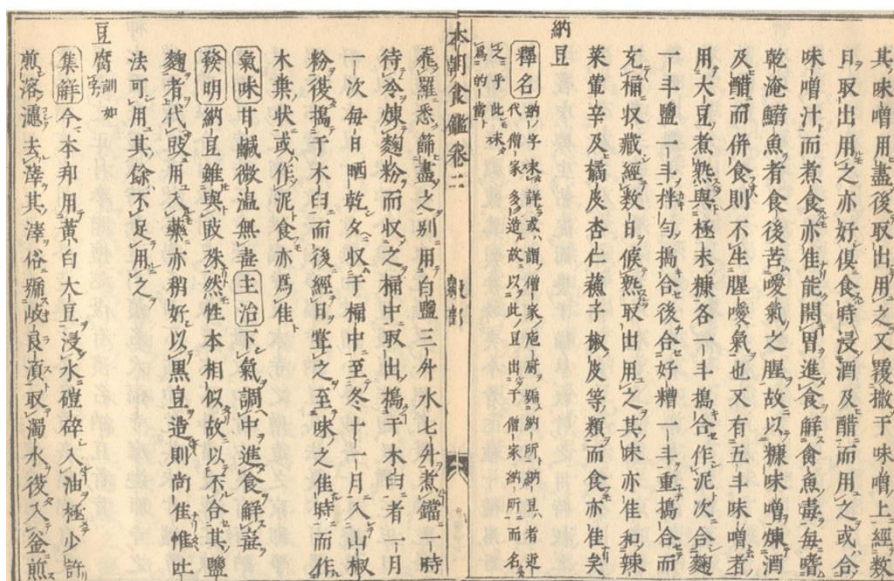 其味噌用盡後取出用之又覆撒于味噌上經數
日取出用之亦好復食時浸酒及醋而用之或合
味噌汁而煮食亦佳能開胃進食解食魚毒毎嗜
乾淹鰯魚者食後苦噯氣之腥故以糠味噌煉酒
及醋而併食則不生腥噯氣也又有五斗味噌者
用大豆煮熟與極末糠各一斗搗合作泥次合麹
一斗鹽一斗拌勻搗合後合好糟一斗重搗合而
充桶収藏經數日候熟取出用之其味亦佳和辣
菜葷辛及橘皮杏仁蘓子椒皮等類而食亦佳矣
納豆
釋名 納字未詳或謂僧家庖厨號納所納豆者近
代僧家多造故以此豆出于僧家納所而名
之乎此未
爲的當
本朝食鑑卷二 穀部
乘羅悉篩盡之別用白鹽三升水七升煮鑑一時
待冷煉麹粉而収之桶中取出搗于木臼者一月
一次毎日晒乾夕収于桶中至冬十一月入山椒
粉後搗于木臼而後經日聋之至味之佳時而作
木葉状或作泥食亦爲佳
氣味 甘鹹微温無毒 主治 下氣調中進食解毒
發明 納豆雖與豉殊然性本相似故以不合其鹽
麹者代豉用入藥亦稍好以黒豆造則尚佳惟吐
法可用其餘不足用之
豆腐 訓如字
集解 今本邦用黄白大豆浸水磑碎入油極少許
煎溶濾去滓其滓俗號岐良須取濁水後入釜煎